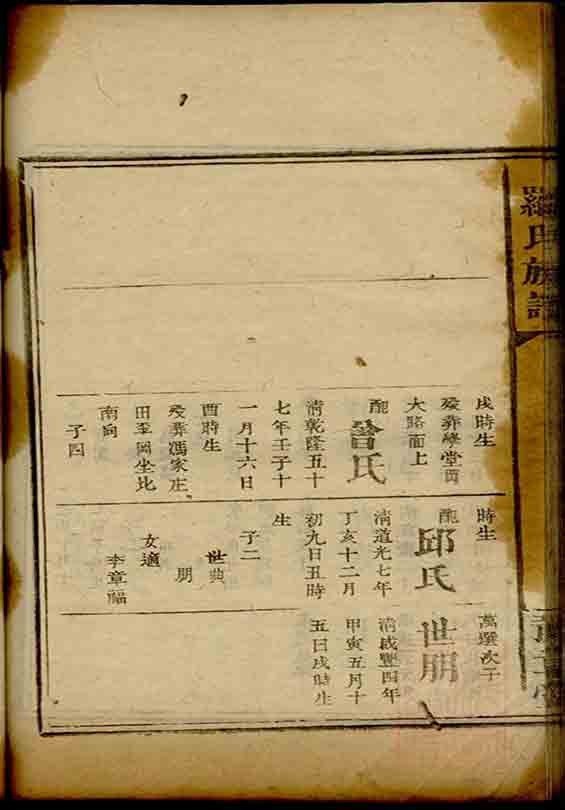 羅氏族譜
戌時生
歿葬學堂岡
大路面上
配
曾氏
清乾隆五十
七年壬子十
一月十六日
酉時生
歿葬馮家庄
田�岡坐北
南向
子四
時生
配
邱氏
清道光七年
丁亥十二月
初九日丑時
生
子二
世典
朋
女適
李章福
萬選次子
世朋
清咸豐四年
甲寅五月十
五日戌時生